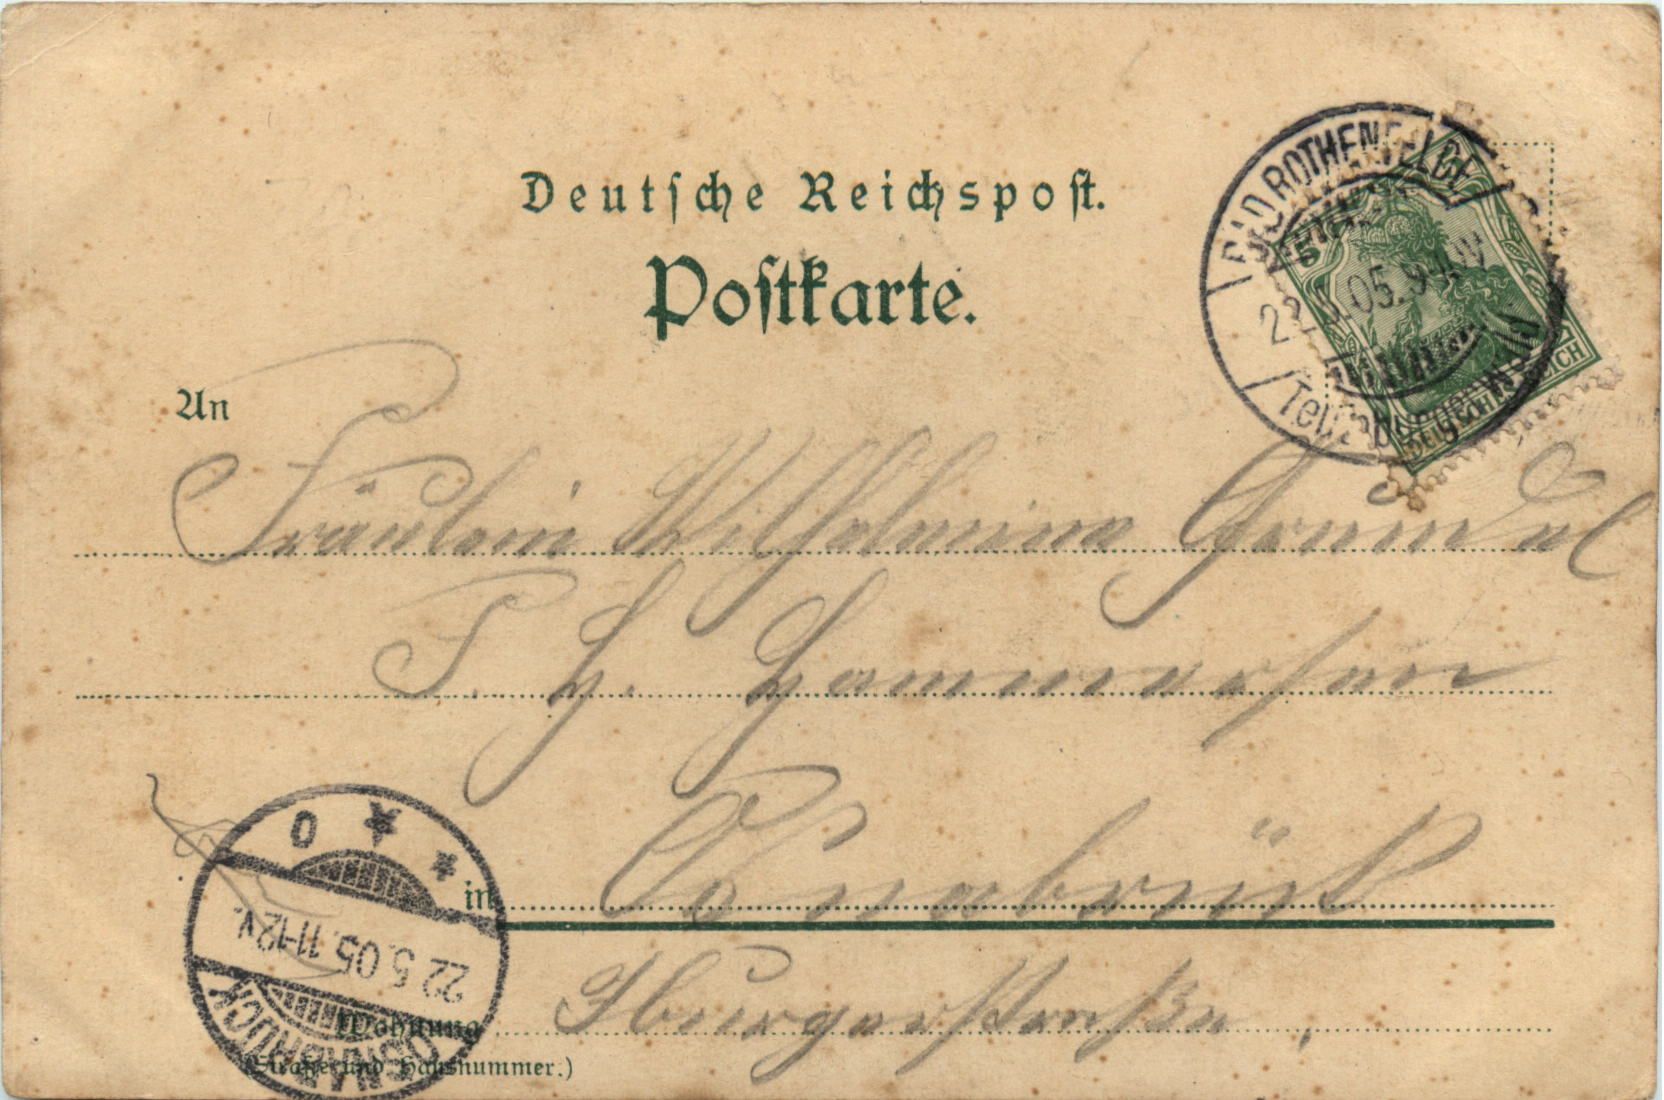 BAD ROTHENFELDE
22.5.05. 9-10V
Teutoburger Wald
5
DEUTSCHES REICH
Deutſche Reichspoſt.
Poſtkarte.
An
Fräulein Wilhelmine Grundel
P. H. Hammersen
in Osnabrück
Iburgerstraße
Wohnung
(Straße und Hausnummer.)
OSNABRÜCK
22.5.05. 11-12V.
* * O